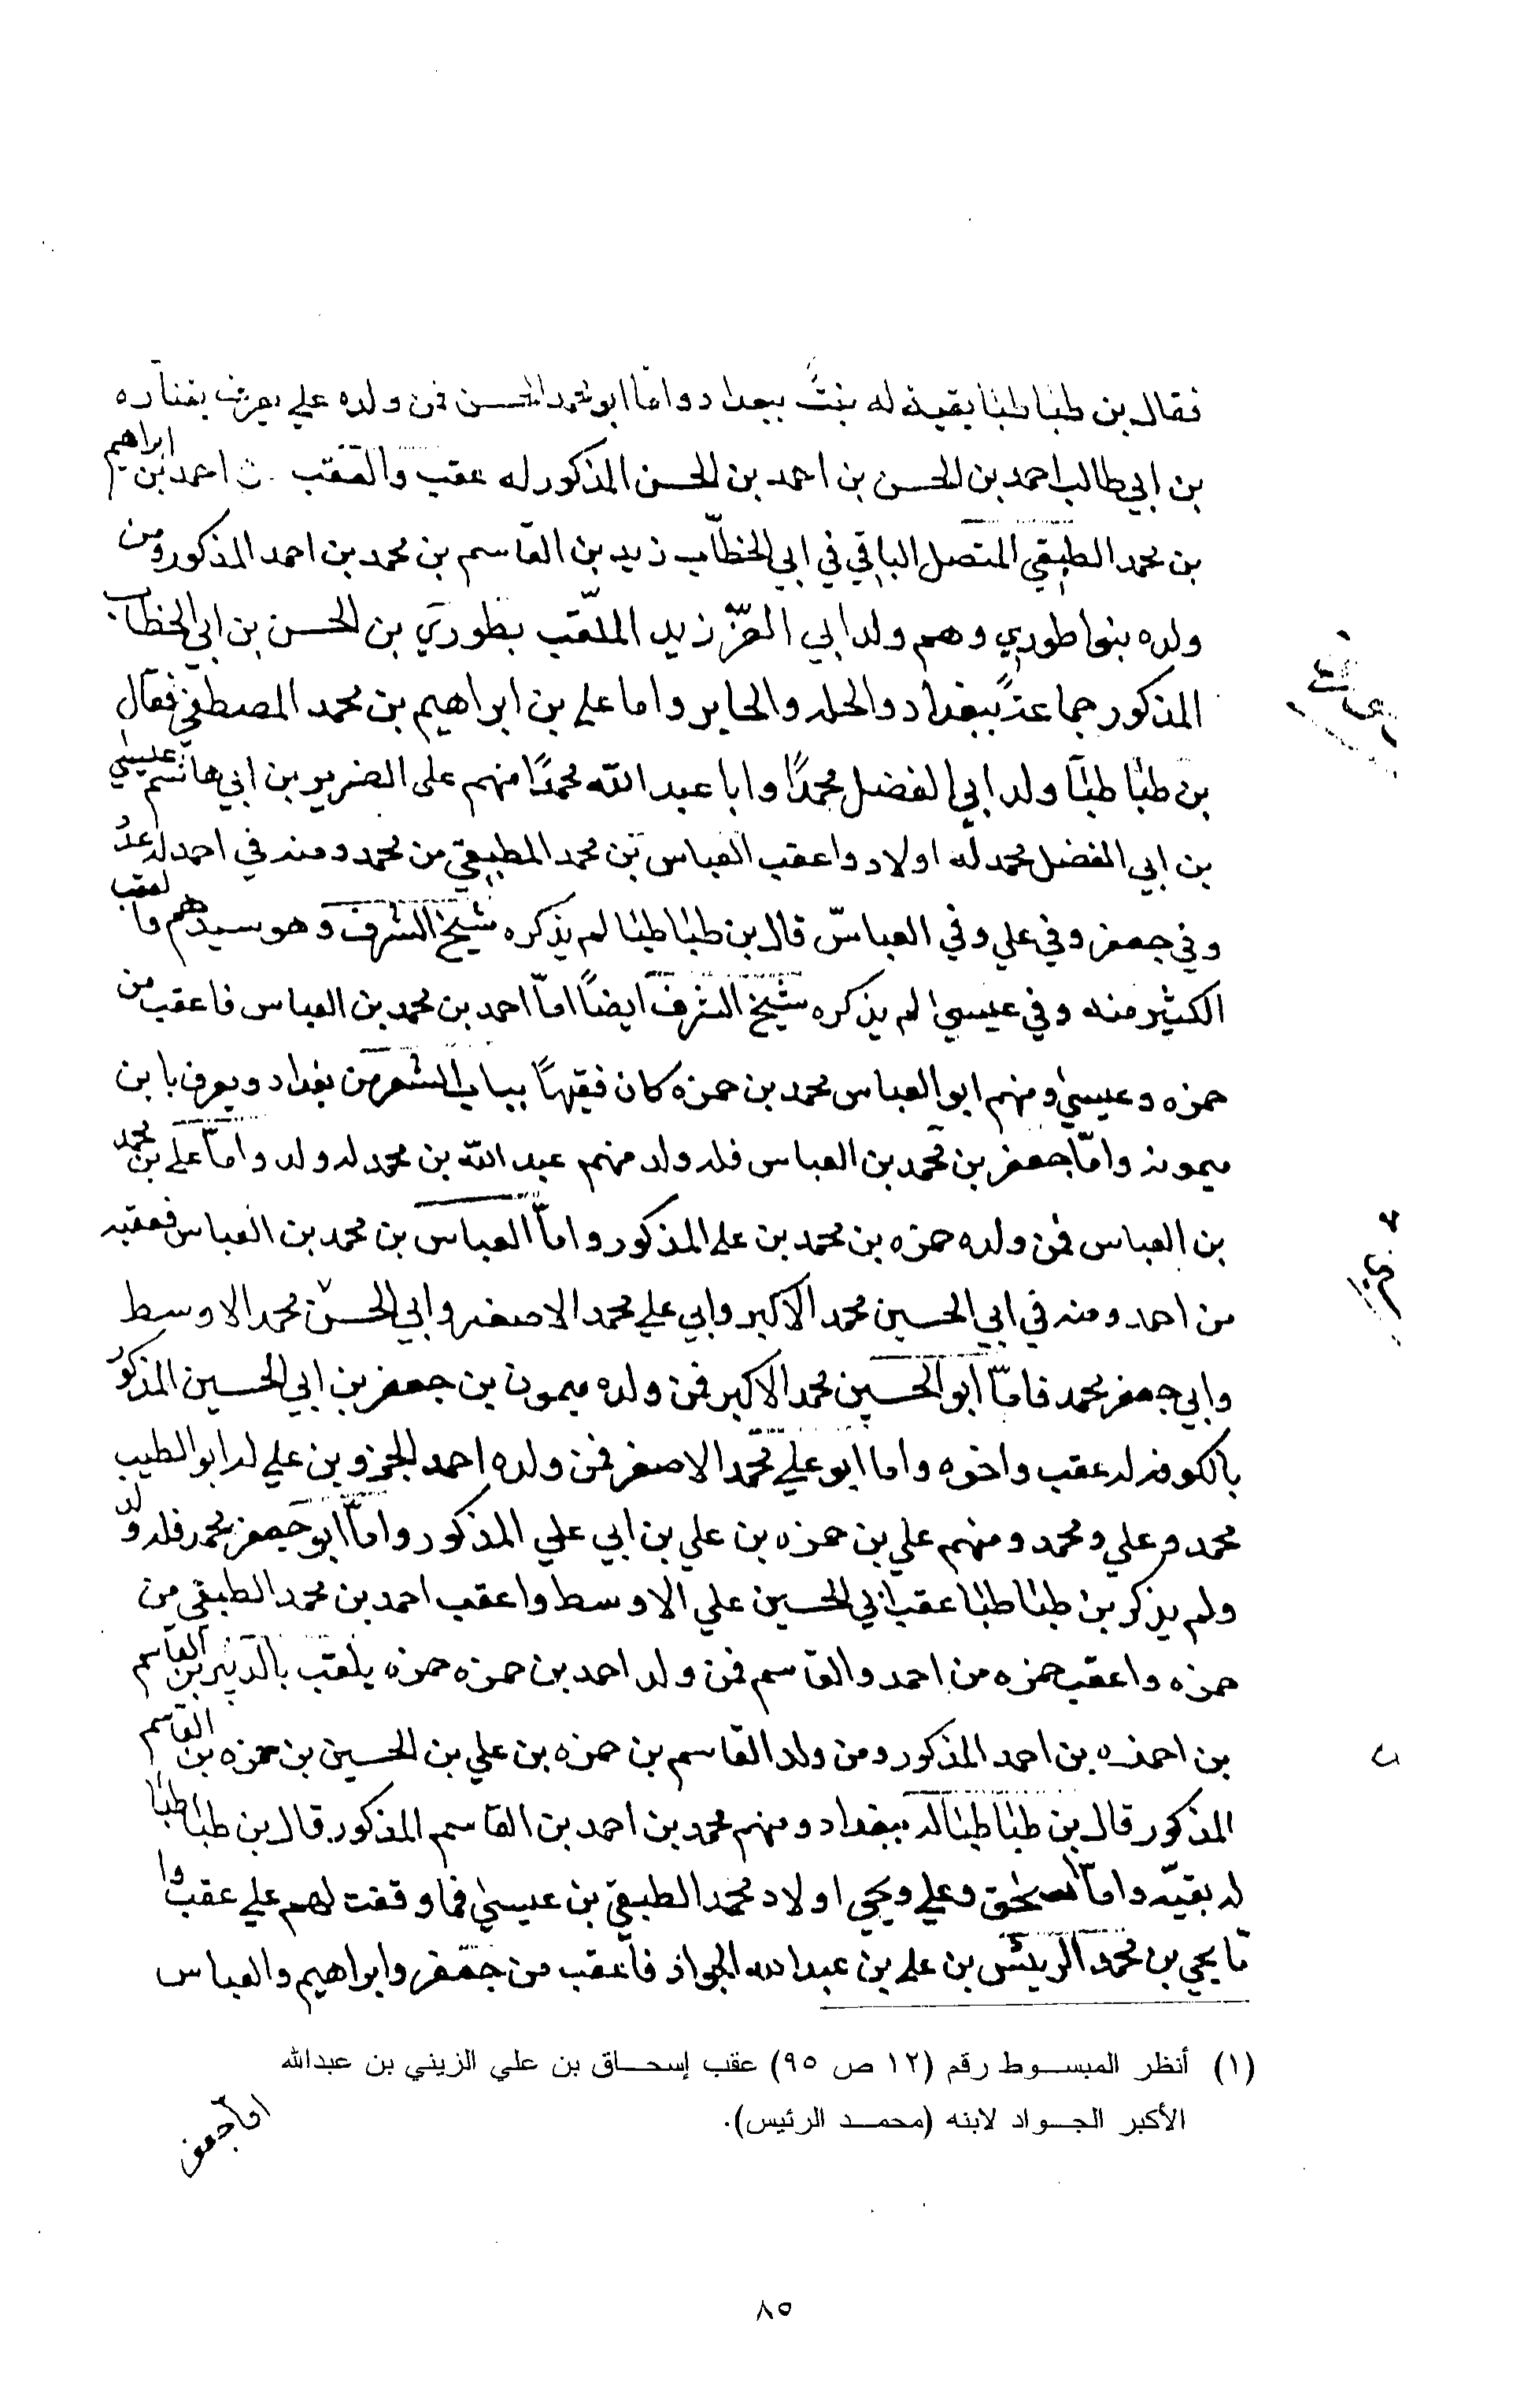 فقال بن طباطبا بقية له بنت ببغداد واما ابو محمد الحسن فمن ولده علي يعرف
بن ابي طالب احمد بن الحسن بن احمد بن الحسن المذكور له عقب والعقب احمد بن ابراهيم
بن محمد الطبقي المتصل الباقي في ابي الخطّاب زيد بن القاسم بن محمد بن احمد المذكور ومن
ولده بنوا طوري وهم ولد ابي العزّ زيد الملقّب بطوري بن الحسن بن ابي الخطاب
المذكور جماعةً ببغداد والحله والحاير واما علي بن ابراهيم بن محمد فقال
بن طباطبا ولد ابي الفضل محمدًا وابا عبد الله محمدًا منهم على الضرير بن ابي هاشم عيسي
بن ابي الفضل محمد له اولاد واعقب العباس بن محمد المطبقي من محمد ومنه في احمد له عدد
وفي جعفر وفي علي وفي العباسّ قال بن طباطبا لم يذكره شيخ الشرف وهو سيدهم والعقب
الكثير منه وفي عيسيٰ لم يذكره شيخ الشرف ايضاً امّا احمد بن محمد بن العباس فاعقب من
حمزه وعيسيٰ ومنهم ابو العباس محمد بن حمزه كان فقيهاً بباب الشعر من بغداد ويعرف بابن
ميمونه وامّا جعفر بن محمد بن العباس فله ولد منهم عبد الله بن محمد له ولد وامّا علي بن محمد
بن العباس فمن ولده حمزه بن محمد بن علي المذكور وامّا العباس بن محمد بن العباس فعقبه
من احمد ومنه في ابي الحسين محمد الاكبر وابي علي محمد الاصغر وابي الحسن محمد الاوسط
وابي جعفر محمد فامّا ابو الحسين محمد الاكبر فمن ولده ميمون بن جعفر بن ابي الحسين المذكور
بالكوفه له عقب واخوه واما ابو علي محمّد الاصغر فمن ولده احمد بن علي له ابو الطيب
محمد وعلي ومحمد ومنهم علي بن حمزه بن علي بن ابي علي المذكور وامّا ابو جعفر محمد فله ولد
ولم يذكر بن طباطبا عقب ابي الحسين علي الاوسط واعقب احمد بن محمد الطبقي من
حمزه واعقب حمزه من احمد والقاسم فمن ولد احمد بن حمزه حمزه يلقب بن القاسم
بن احمزه بن احمد المذكور ومن ولد القاسم بن حمزه بن علي بن الحسين بن حمزه بن القاسم
المذكور قال بن طباطبا له ببغداد ومنهم محمد بن احمد بن القاسم المذكور قال بن طباطبا
له بقيّه وامّا اسحٰق وعلي ويحيى اولاد محمد الطبقي بن عيسيٰ فما وقفت لهم علي عقب وا
مّا يحيي بن محمد الرئيس بن علي بن عبد الله الجواد فاعقب من جعفر وابراهيم والعباس
(١) أنظر المبسوط رقم (١٢ ص ٩٥) عقب إسحاق بن علي الزيني بن عبدالله
الأكبر الجواد لابنه (محمد الرئيس).
امّا جعفر
٨٥